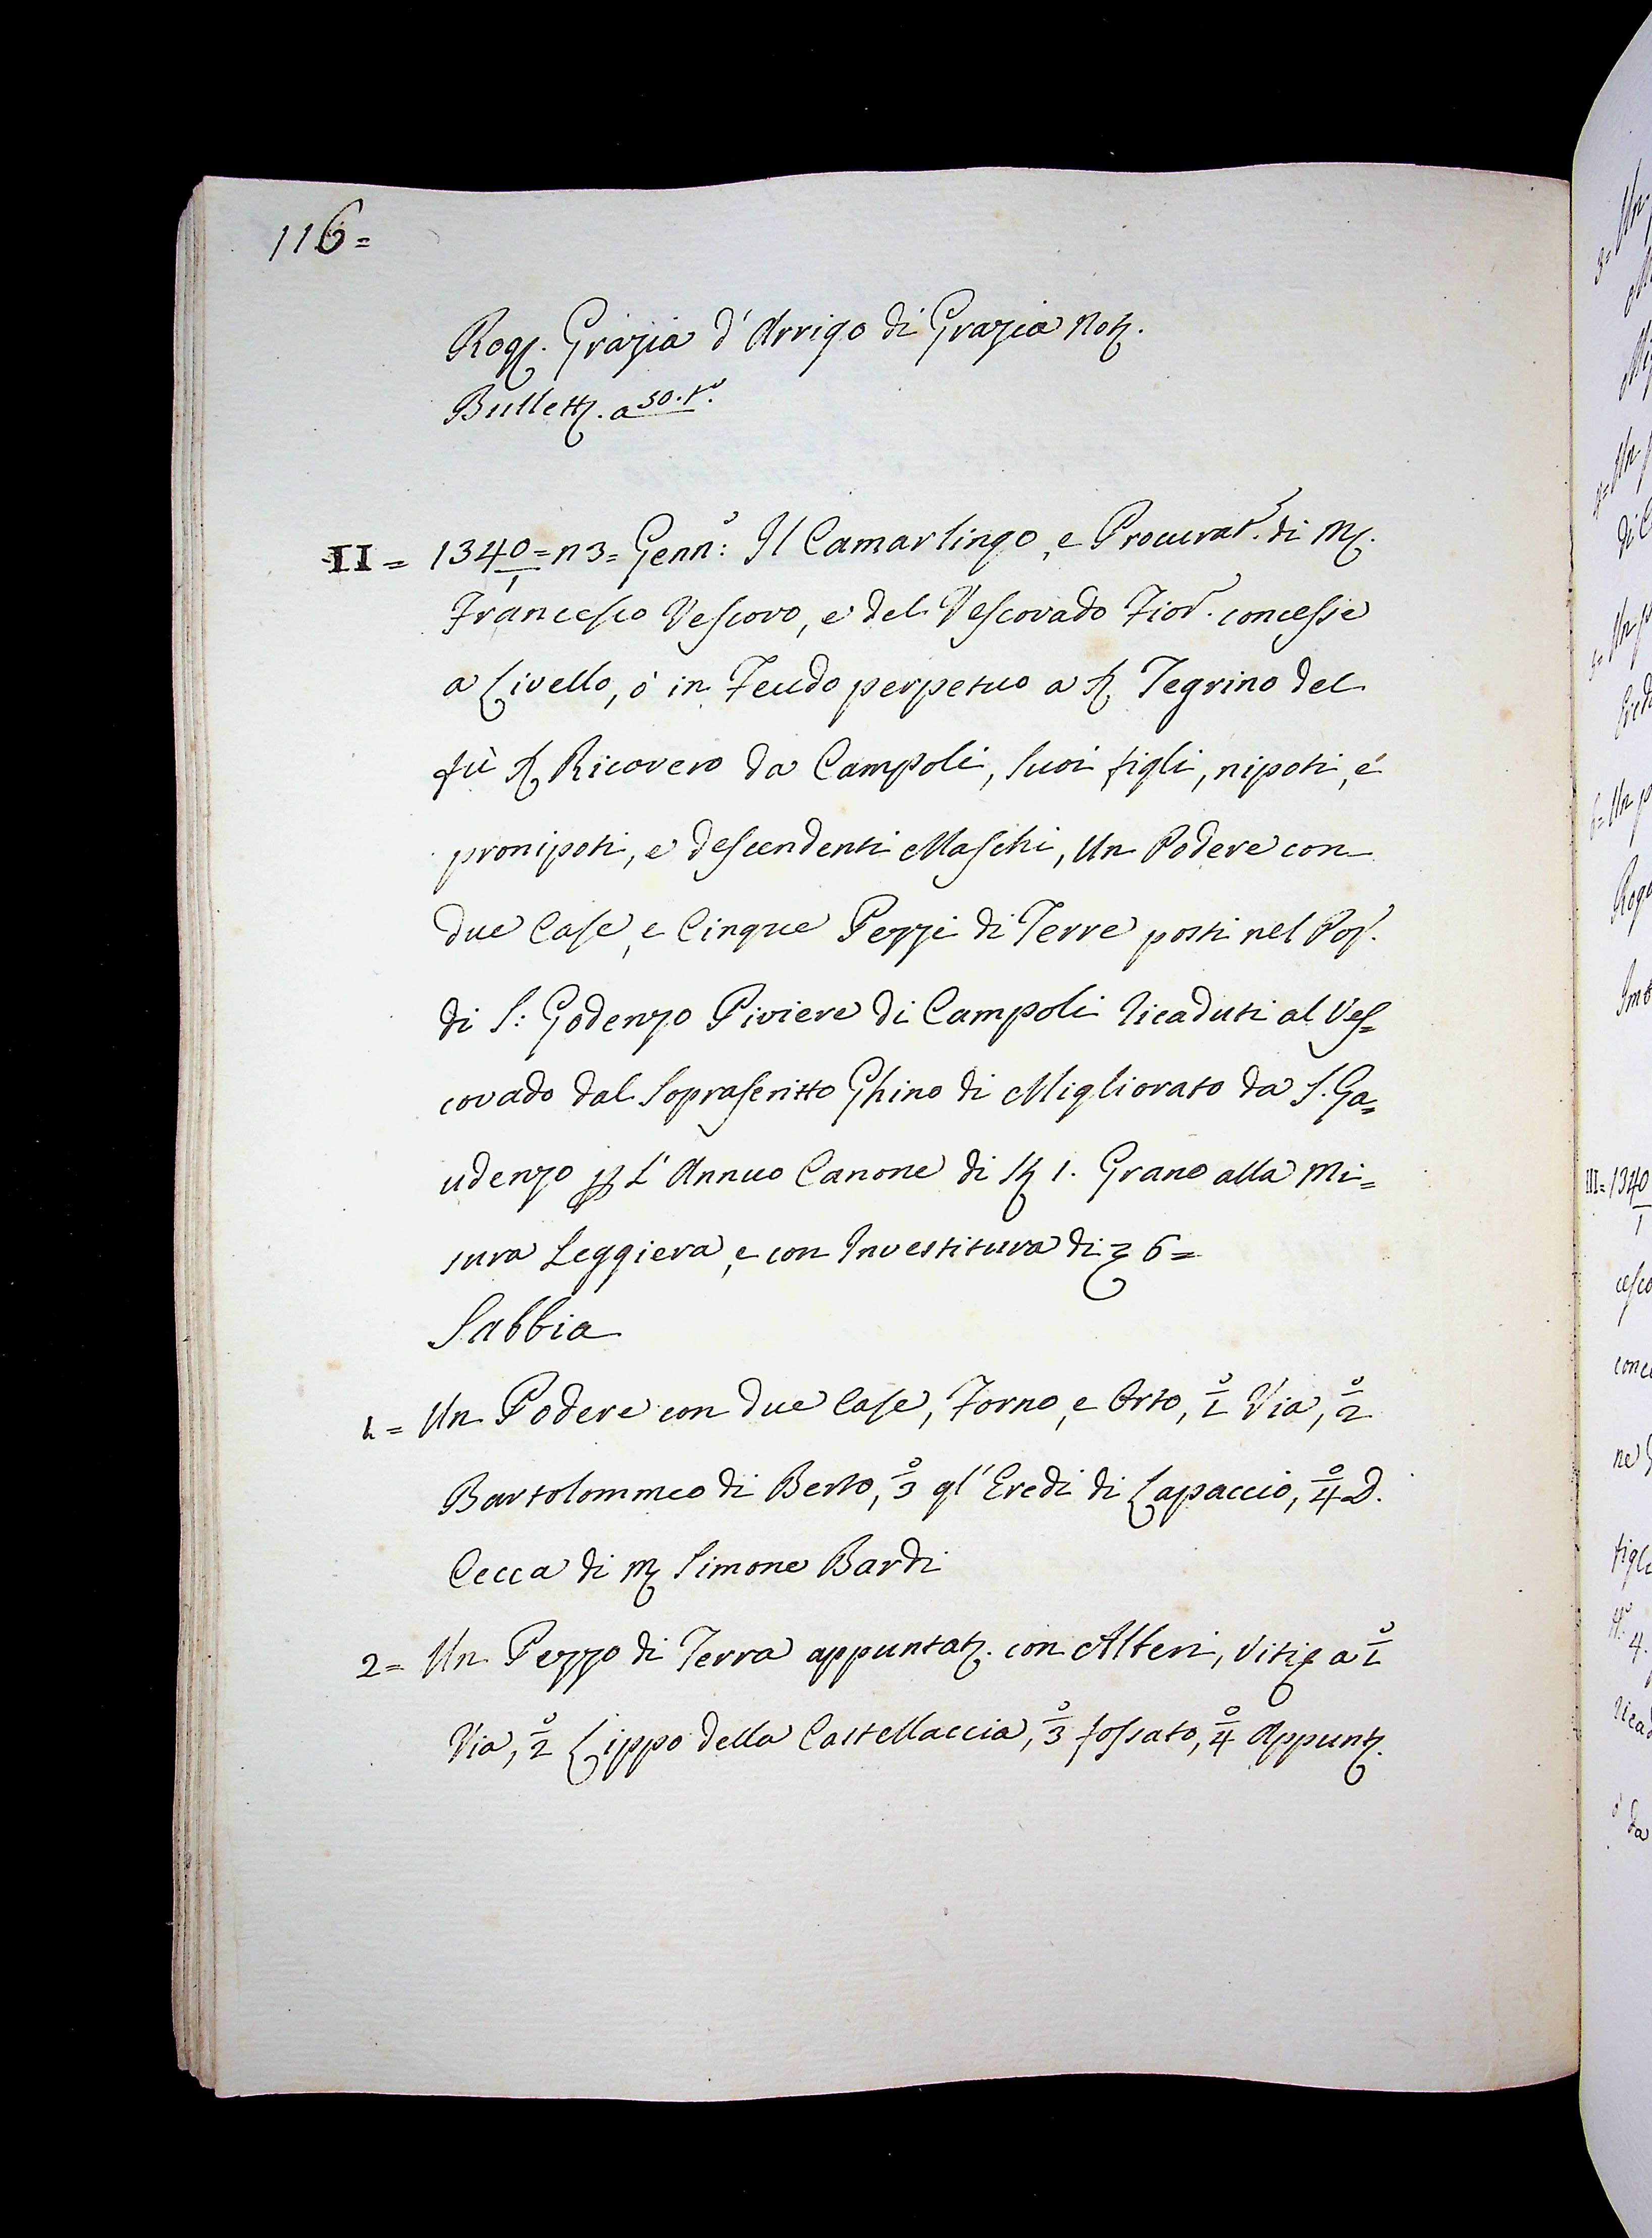 116=
Rog. Grazia d'Arrigo di Grazia Not.
Bullett. a 50. t.º
II = 1340/1 = n 3 = Genn:º Il Camarlingo, e Procurat.r di M.
Francesco Vescovo, e del Vescovado Fior.o concesse
a Livello, ò in Feudo perpetuo a S. Tegrino del
fù S. Ricovero da Campoli, suoi figli, nipoti, e
pronipoti, e descendenti Maschi, Un Podere con
due Case, e Cinque Pezzi di Terre posti nel Pop.o
di S: Godenzo Piviere di Campoli ricaduti al Ves=
covado dal Soprascritto Ghino di Migliorato da S. Ga=
udenzo p L'Annuo Canone di St 1. Grano alla Mi=
sura Leggiera, e con Investitura di 6=
Sabbia
1 = Un Podere con due Case, Forno, e Orto, º/1 Via, º/2
Bartolommeo di Berto, º/3 gl'Eredi di Lapaccio, º/4 D.
Cecca di M Simone Bardi
2 = Un Pezzo di Terra appuntat. con Alberi, Viti a º/1
Via, º/2 Lippo della Castellaccia, º/3 fossato, º/4 Appunt.